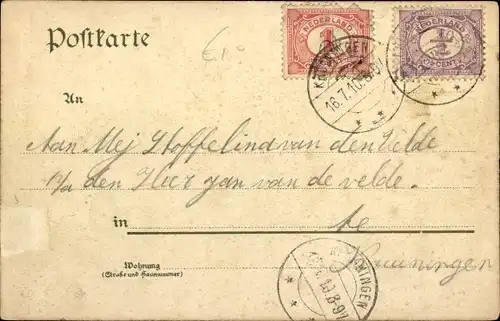 Postkarte
NEDERLAND
1
NEDERLAND
1/2
CENT
16.7.10.
An
Aan Mej Stoffelind van den Velde
p/a den Heer jan van de velde.
in te
Kruiningen
Wohnung
(Straße und Hausnummer)